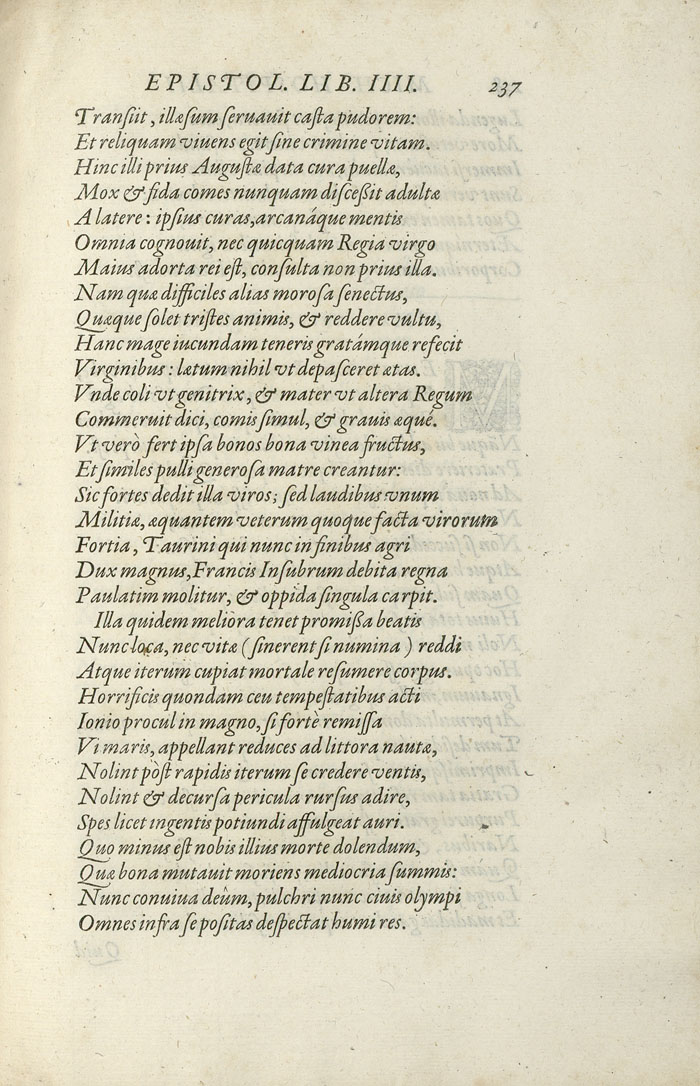 EPISTOL. LIB. IIII. 237
Transiit, illæsum seruauit casta pudorem:
Et reliquam viuens egit sine crimine vitam.
Hinc illi prius Augustæ data cura puellæ,
Mox & fida comes nunquam disceßit adultæ
A latere: ipsius curas, arcanáque mentis
Omnia cognouit, nec quicquam Regia virgo
Maius adorta rei est, consulta non prius illa.
Nam quæ difficiles alias morosa senectus,
Quæque solet tristes animis, & reddere vultu,
Hanc mage iucundam teneris gratámque refecit
Virginibus: lætum nihil vt depasceret ætas.
Vnde coli vt genitrix, & mater vt altera Regum
Commeruit dici, comis simul, & grauis æqué.
Vt verò fert ipsa bonos bona vinea fructus,
Et similes pulli generosa matre creantur:
Sic fortes dedit illa viros; sed laudibus vnum
Militiæ, æquantem veterum quoque facta virorum
Fortia, Taurini qui nunc in finibus agri
Dux magnus, Francis Insubrum debita regna
Paulatim molitur, & oppida singula carpit.
Illa quidem meliora tenet promißa beatis
Nunc loca, nec vitæ (sinerent si numina) reddi
Atque iterum cupiat mortale resumere corpus.
Horrificis quondam ceu tempestatibus acti
Ionio procul in magno, si fortè remissa
Vi maris, appellant reduces ad littora nautæ,
Nolint pòst rapidis iterum se credere ventis,
Nolint & decursa pericula rursus adire,
Spes licet ingentis potiundi affulgeat auri.
Quo minus est nobis illius morte dolendum,
Quæ bona mutauit moriens mediocria summis:
Nunc conuiua deûm, pulchri nunc ciuis olympi
Omnes infra se positas despectat humi res.